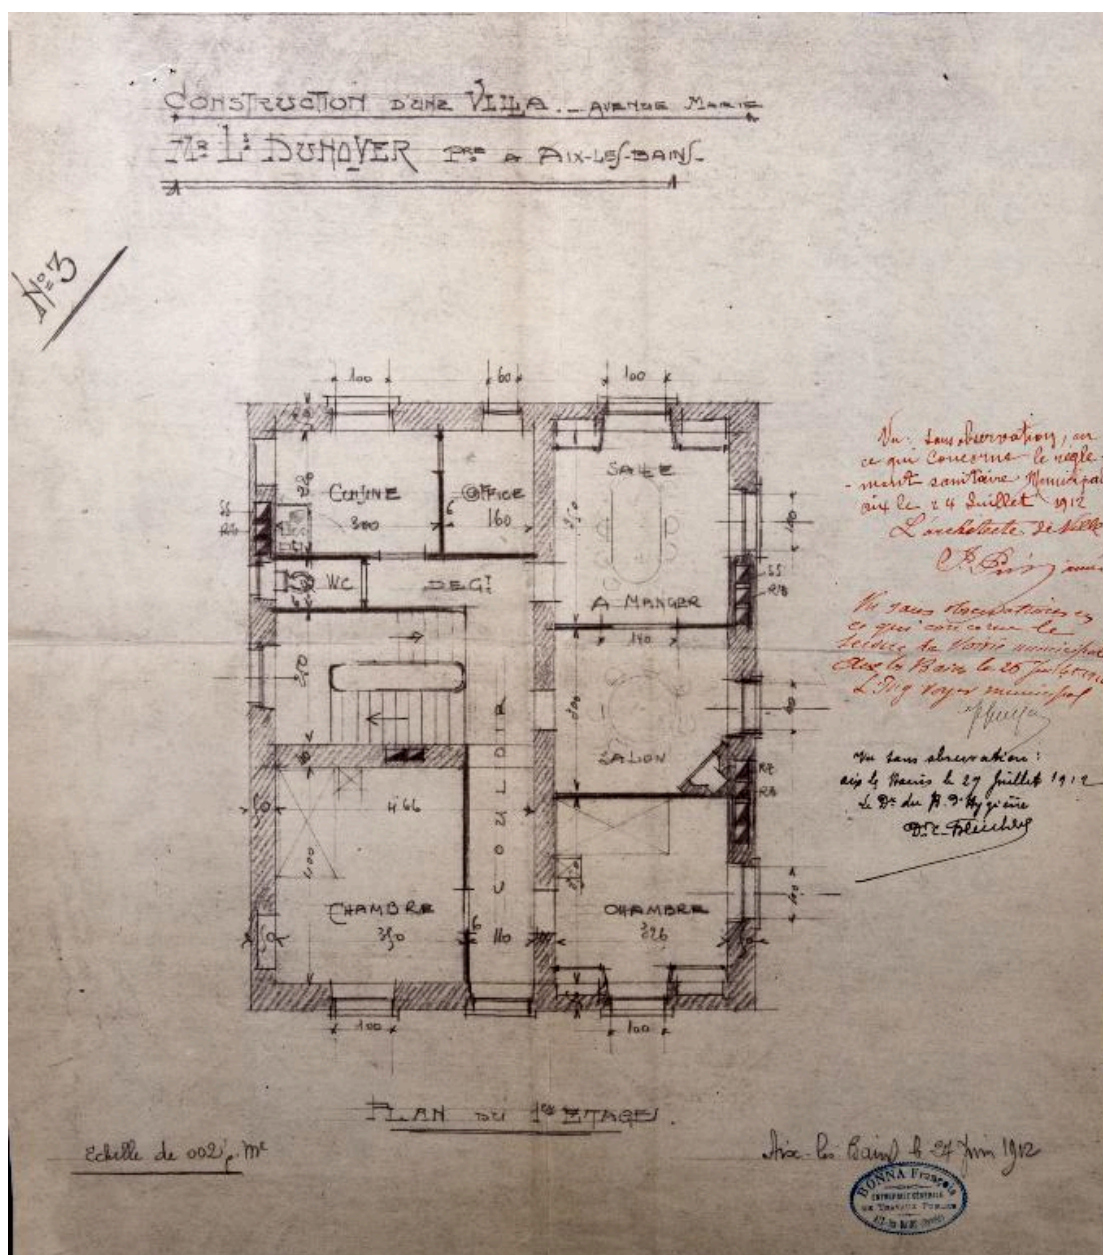 CONSTRUCTION D'UNE VILLA. _ AVENUE MARIE
MR L: DUNOYER PRE A AIX-LES-BAINS.
No 3
100
60
100
CUISINE
300
OFFICE
160
6
SALLE
A MANGER
140
SS
WC
DEGT
SS
COULOIR
SALON
300
466
400
CHAMBRE
350
6
110
CHAMBRE
326
100
100
100
Vu: sans observation, en
ce qui concerne le règle-
-ment sanitaire Municipal
aix le 24 Juillet 1912
L'architecte de Ville
Vu sans observations en
ce qui concerne le
service la Voirie municipal
Aix les Bains le 26 Juillet 1912
L'Ing Voyer municipal
Vu sans observation:
aix les Bains le 29 Juillet 1912
Le Dr du B. d'Hygiène
PLAN DU 1er ETAGE.
Echelle de 002 p. Me
Aix-les-Bains le 24 Juin 1912
BONNA François
ENTREPRISE GÉNÉRALE
DE TRAVAUX PUBLICS
AIX-les-BAINS (Savoie)